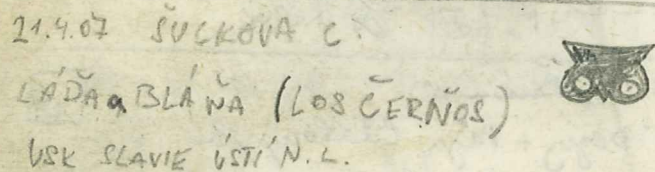 21.4.07 ŠUCKOVA C.
LÁĎA a BLÁŇA (LOS ČERŇOS)
VSK SLAVIE ÚSTÍ N.L.